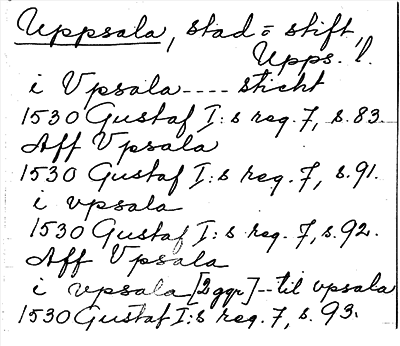 Uppsala, stad o stift,
Upps. l.
i Vpsala ---- sticht
1530 Gustaf I:s reg. 7, s. 83.
Aff Vpsala
1530 Gustaf I:s reg. 7, s. 91.
i vpsala
1530 Gustaf I:s reg. 7, s. 92.
Aff Vpsala
i vpsala [2 ggr] -- til vpsala
1530 Gustaf I:s reg. 7, s. 93.